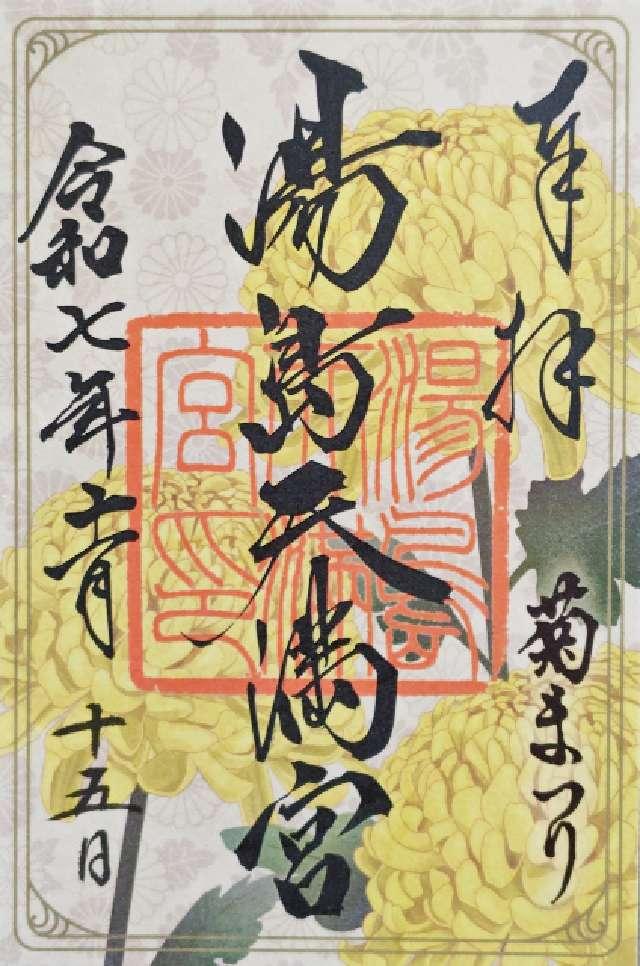 奉拝
菊まつり
湯島天満宮
湯島天満宮印
令和七年十一月十五日